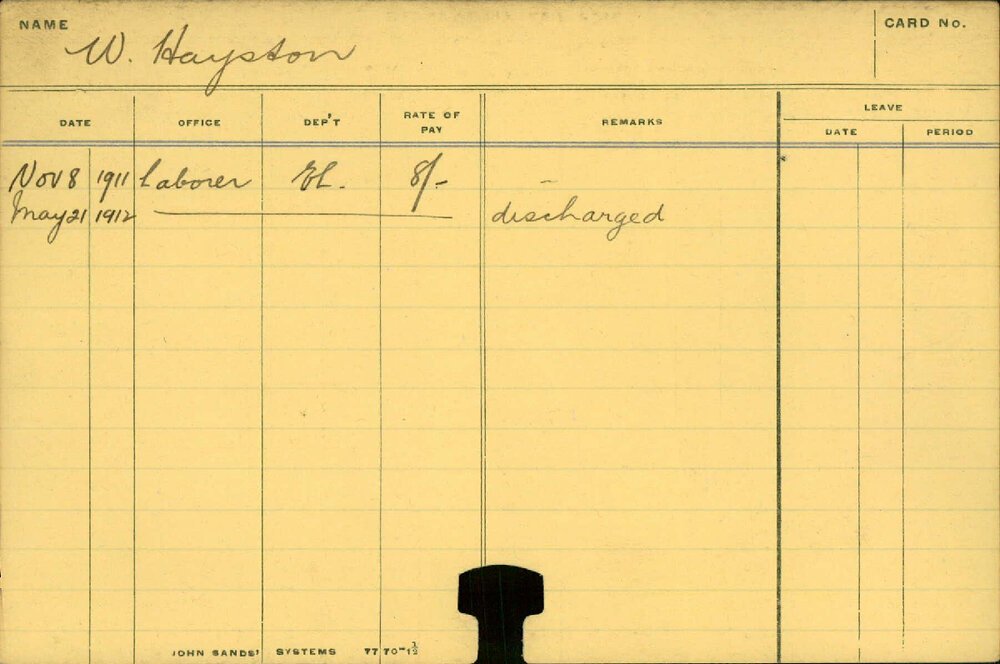 NAME W. Hayston CARD No.
DATE OFFICE DEP'T RATE OF PAY REMARKS LEAVE
DATE PERIOD
Nov 8 1911 Laborer EL. 8/-
May 21 1912 discharged
JOHN SANDS' SYSTEMS 7770-½